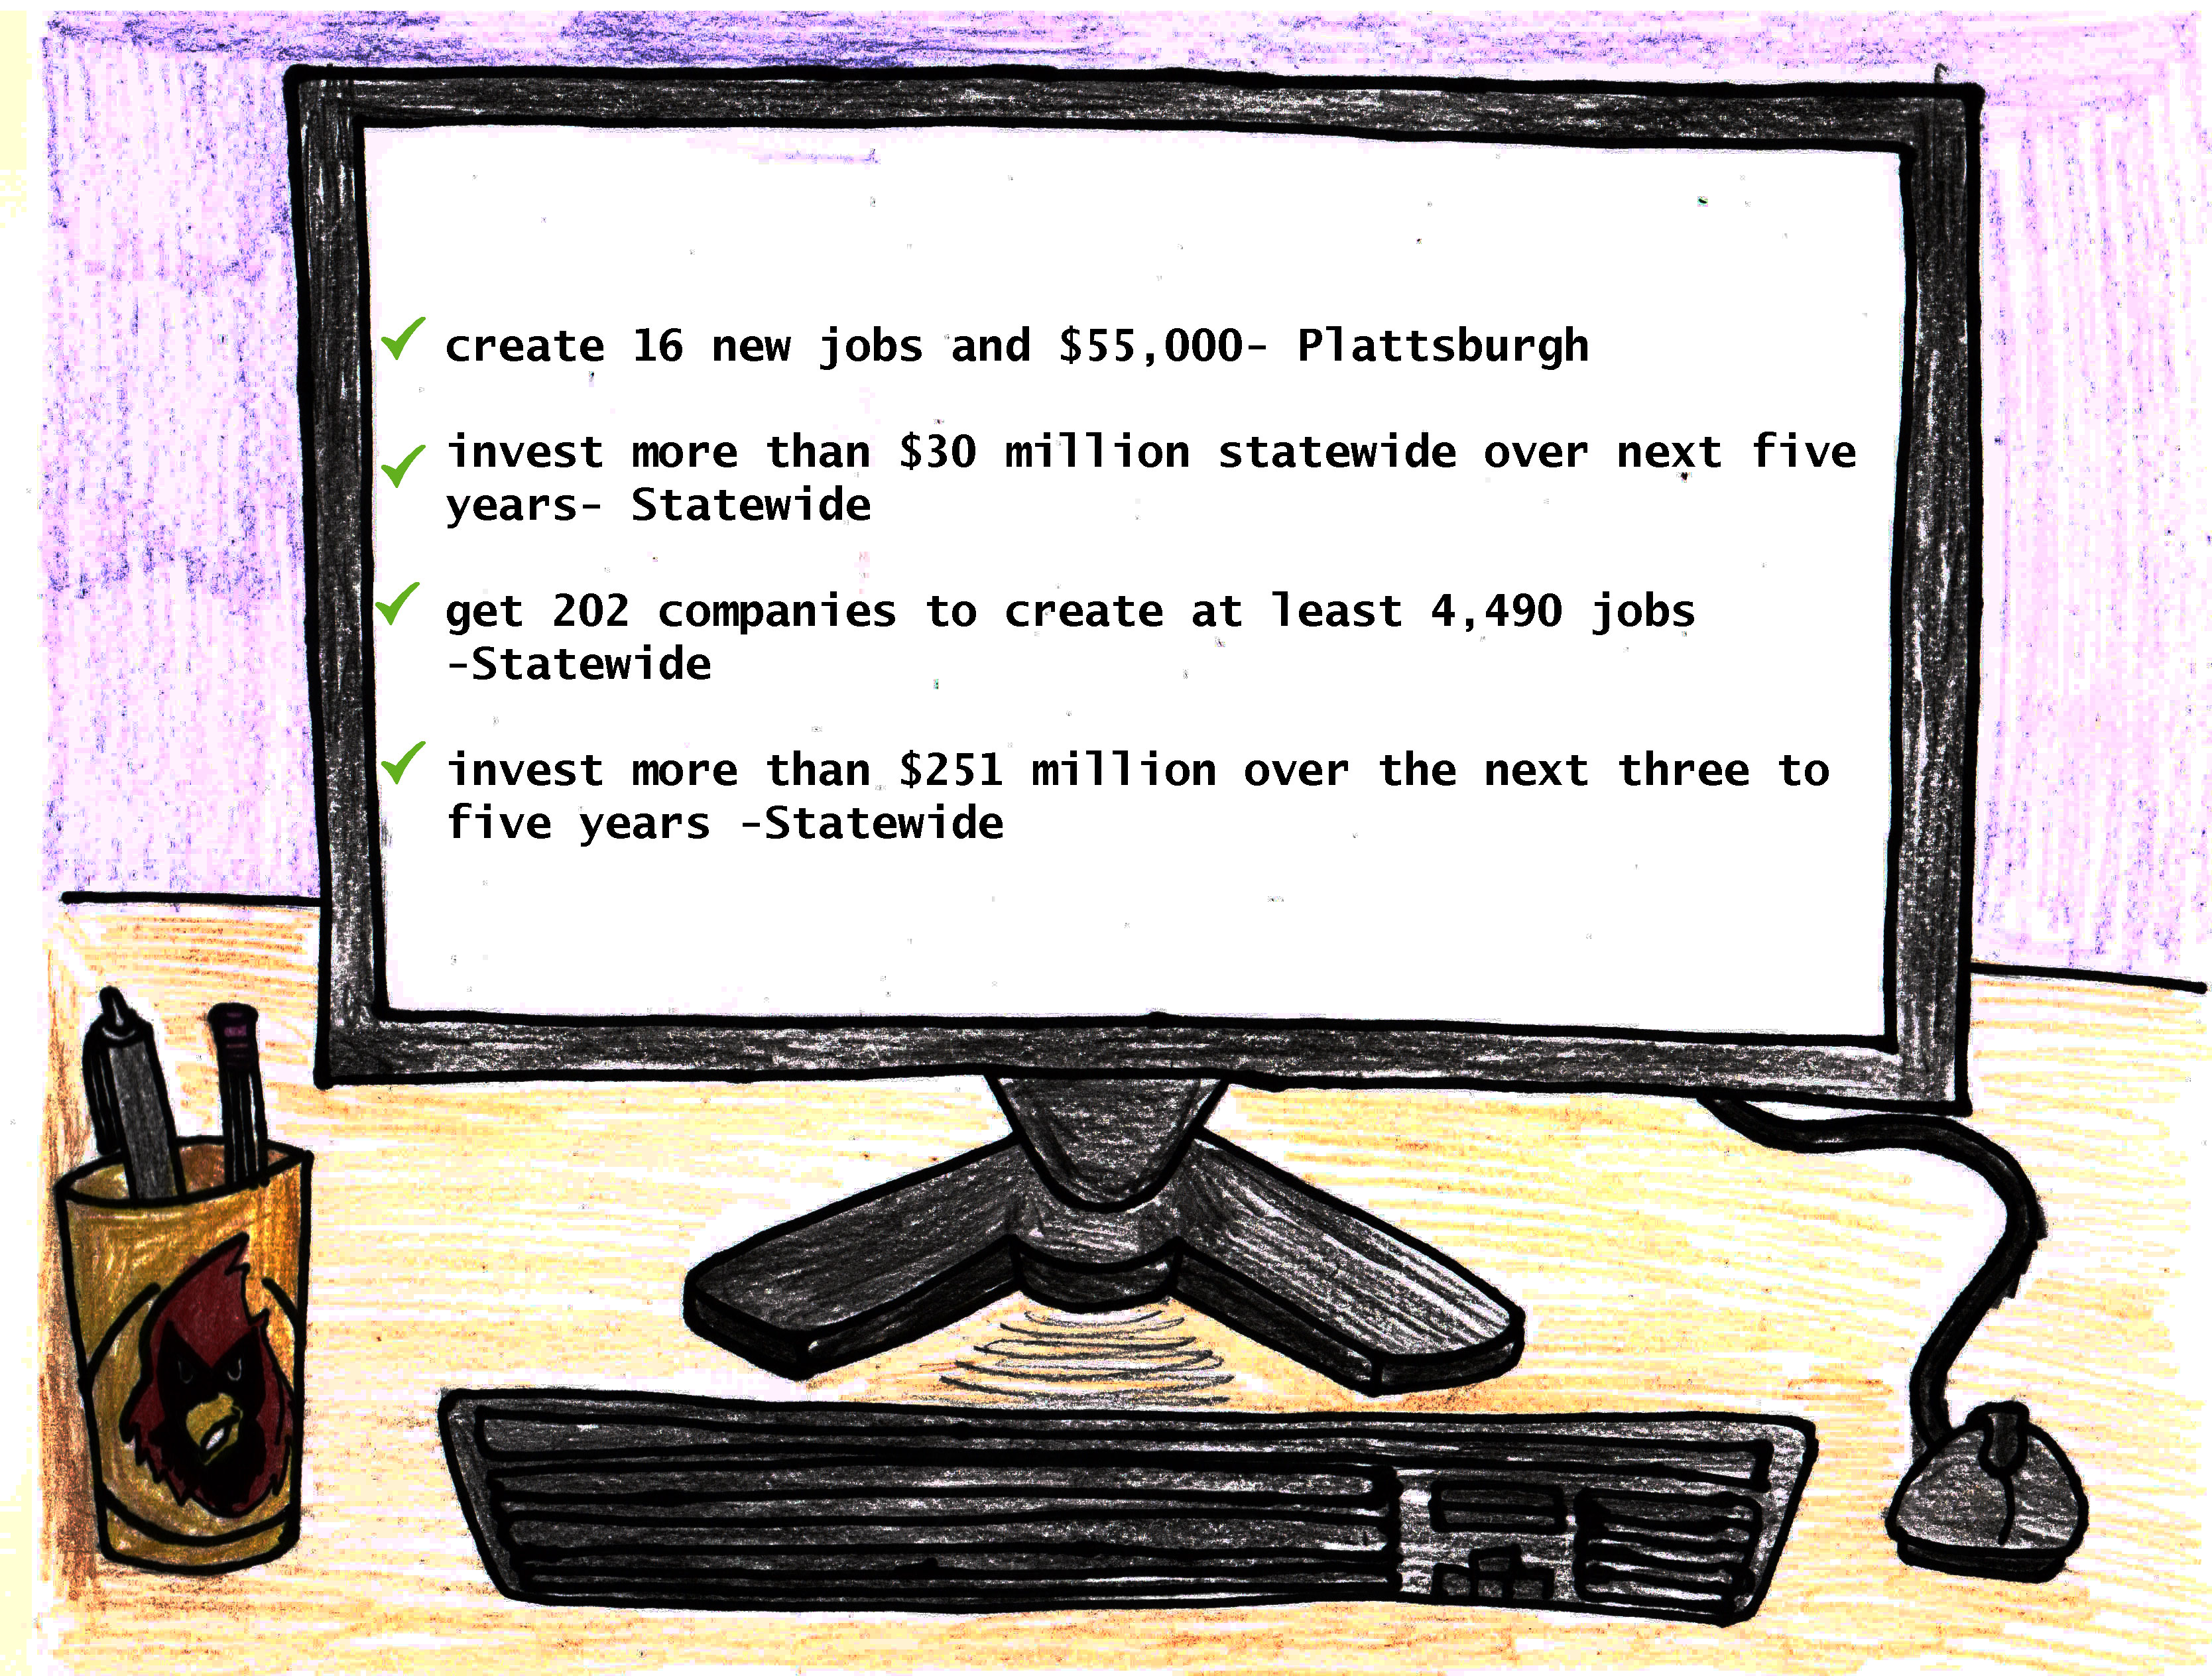 create 16 new jobs and $55,000- Plattsburgh
invest more than $30 million statewide over next five
years- Statewide
get 202 companies to create at least 4,490 jobs
-Statewide
invest more than $251 million over the next three to
five years -Statewide